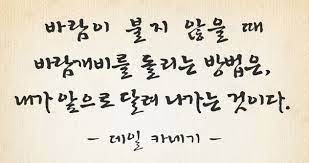 바람이 불지 않을 때
바람개비를 돌리는 방법은,
내가 앞으로 달려 나가는 것이다.
- 데일 카네기 -